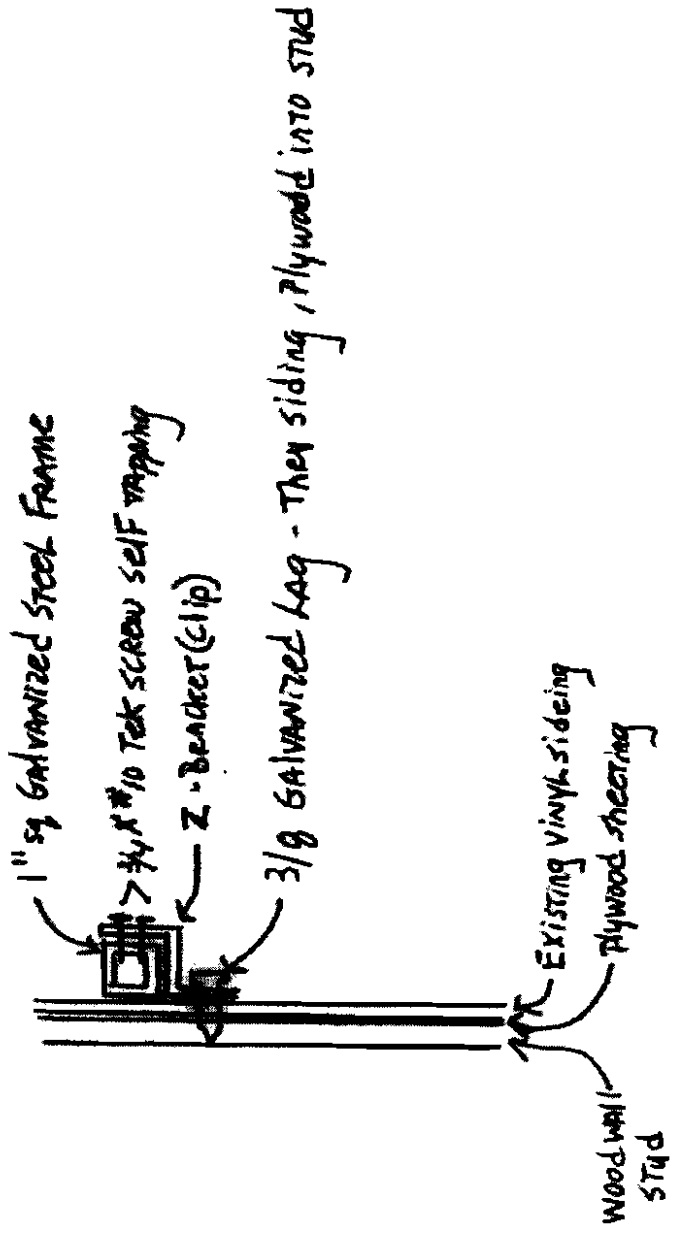 1" sq GALVANIZED STEEL FRAME
> 3/4 X #10 TEK SCREW SELF TAPPING
Z - BRACKET (clip)
3/8 GALVANIZED LAG - Thru siding, Plywood into STUD
EXISTING VINYL sideing
Plywood sheeting
WOOD WALL
STUD